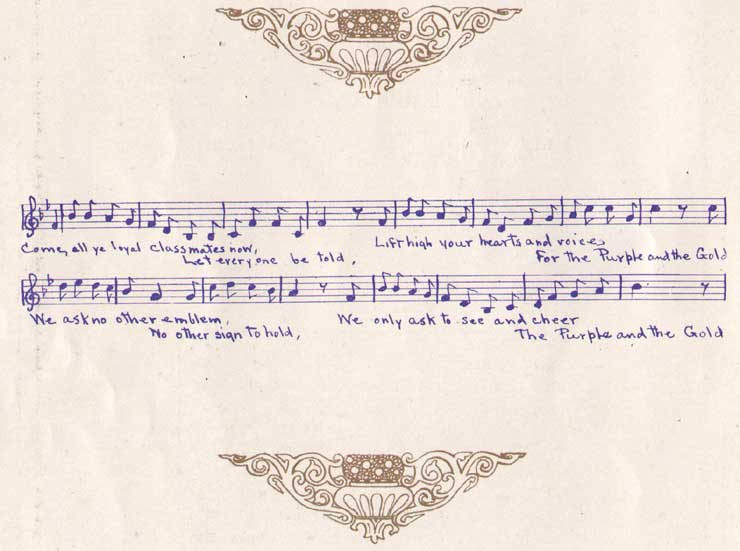 Come, all ye loyal classmates now, Lift high your hearts and voices
Let every one be told, For the Purple and the Gold
We ask no other emblem, We only ask to see and cheer
No other sign to hold, The Purple and the Gold